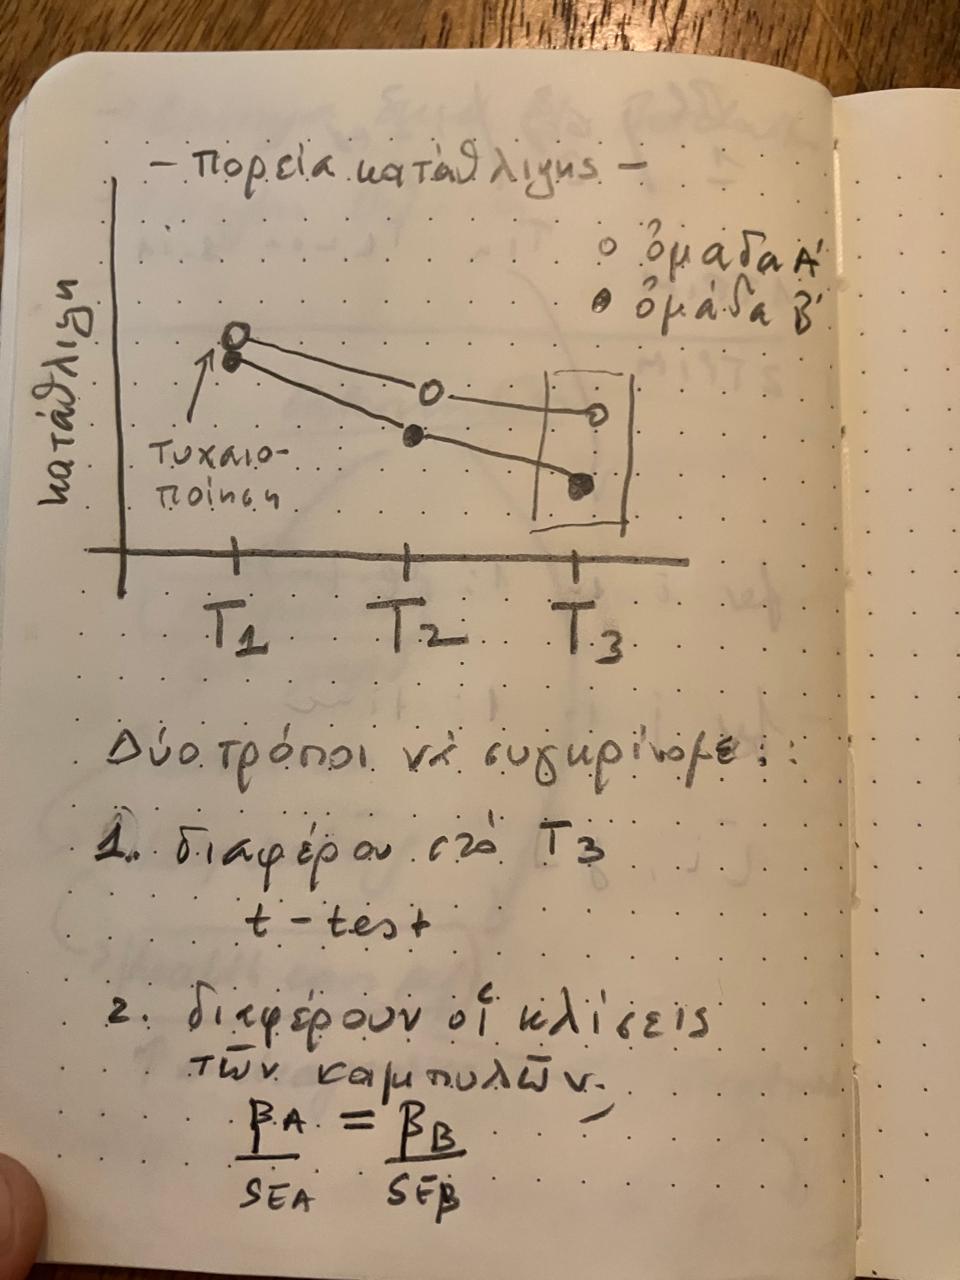 - πορεία κατάθλιψης -
ὁμάδα Α'
ὁμάδα Β'
κατάθλιψη
τυχαιο-
ποίηση
T1 T2 T3
Δύο τρόποι νὰ συγκρίνομε:
1. διαφέρου στὸ T3
t-test
2. διαφέρουν οἱ κλίσεις
τῶν καμπυλῶν,
βA = βB
SEA SEβ